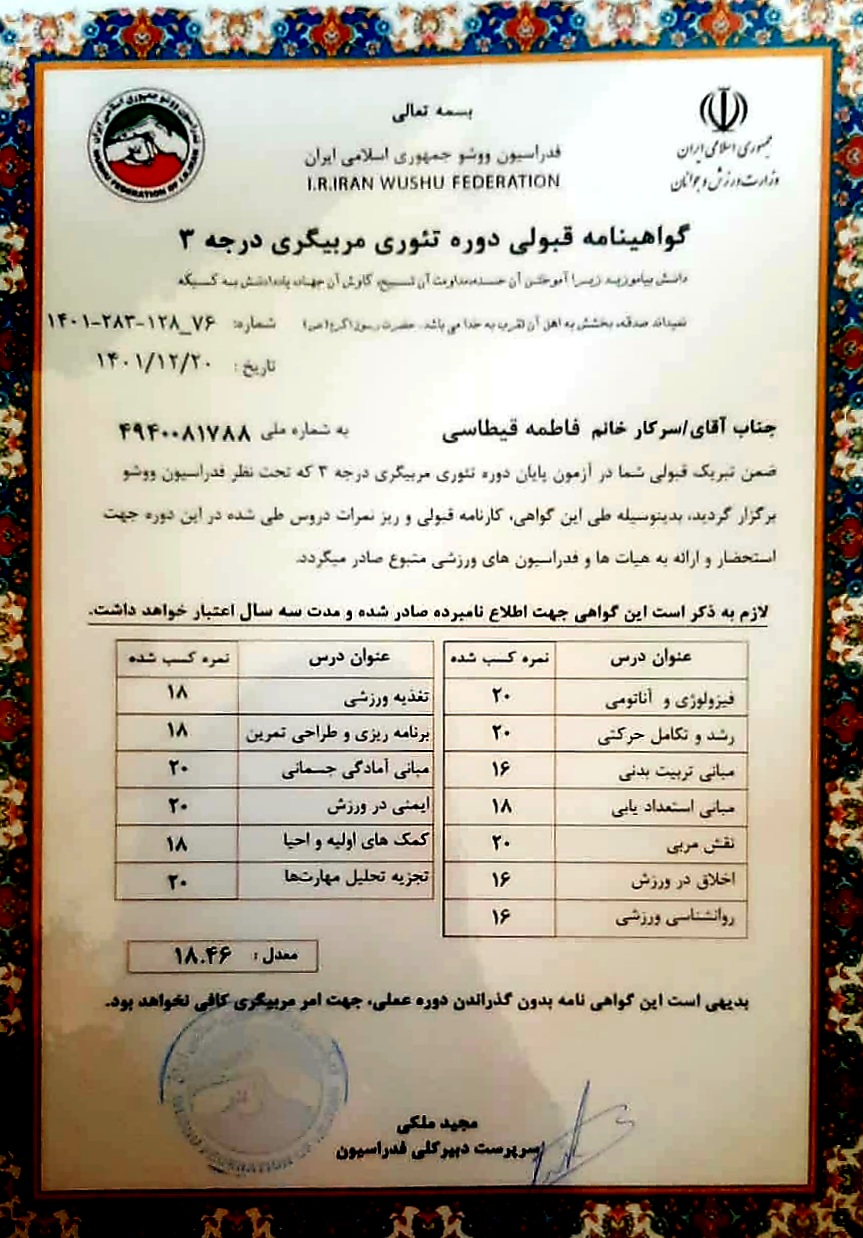 بسمه تعالی
فدراسیون ووشو جمهوری اسلامی ایران
I.R.IRAN WUSHU FEDERATION
جمهوری اسلامی ایران
وزارت ورزش و جوانان
فدراسیون ووشو جمهوری اسلامی ایران
WUSHU FEDERATION OF I.R.IRAN
گواهینامه قبولی دوره تئوری مربیگری درجه ۳
دانش بیاموزید زیرا آموختن آن حسنه، مداومت آن تسبیح، کاوش آن جهاد، یاددادنش به کسیکه
نمیداند صدقه، بخشش به اهل آن تقرب به خدا می باشد. حضرت رسول اکرم (ص)
شماره: ۷۶_۱۲۸-۲۸۳-۱۴۰۱
تاریخ: ۱۴۰۱/۱۲/۲۰
جناب آقای/سرکار خانم فاطمه قیطاسی به شماره ملی ۴۹۴۰۰۸۱۷۸۸
ضمن تبریک قبولی شما در آزمون پایان دوره تئوری مربیگری درجه ۳ که تحت نظر فدراسیون ووشو
برگزار گردید، بدینوسیله طی این گواهی، کارنامه قبولی و ریز نمرات دروس طی شده در این دوره جهت
استحضار و ارائه به هیات ها و فدراسیون های ورزشی متبوع صادر میگردد.
لازم به ذکر است این گواهی جهت اطلاع نامبرده صادر شده و مدت سه سال اعتبار خواهد داشت.
عنوان درس نمره کسب شده عنوان درس نمره کسب شده
فیزولوژی و آناتومی ۲۰ تغذیه ورزشی ۱۸
رشد و تکامل حرکتی ۲۰ برنامه ریزی و طراحی تمرین ۱۸
مبانی تربیت بدنی ۱۶ مبانی آمادگی جسمانی ۲۰
مبانی استعداد یابی ۱۸ ایمنی در ورزش ۲۰
نقش مربی ۲۰ کمک های اولیه و احیا ۱۸
اخلاق در ورزش ۱۶ تجزیه تحلیل مهارت‌ها ۲۰
روانشناسی ورزشی ۱۶
معدل: ۱۸.۴۶
بدیهی است این گواهی نامه بدون گذراندن دوره عملی، جهت امر مربیگری کافی نخواهد بود.
مجید ملکی
سرپرست دبیرکلی فدراسیون